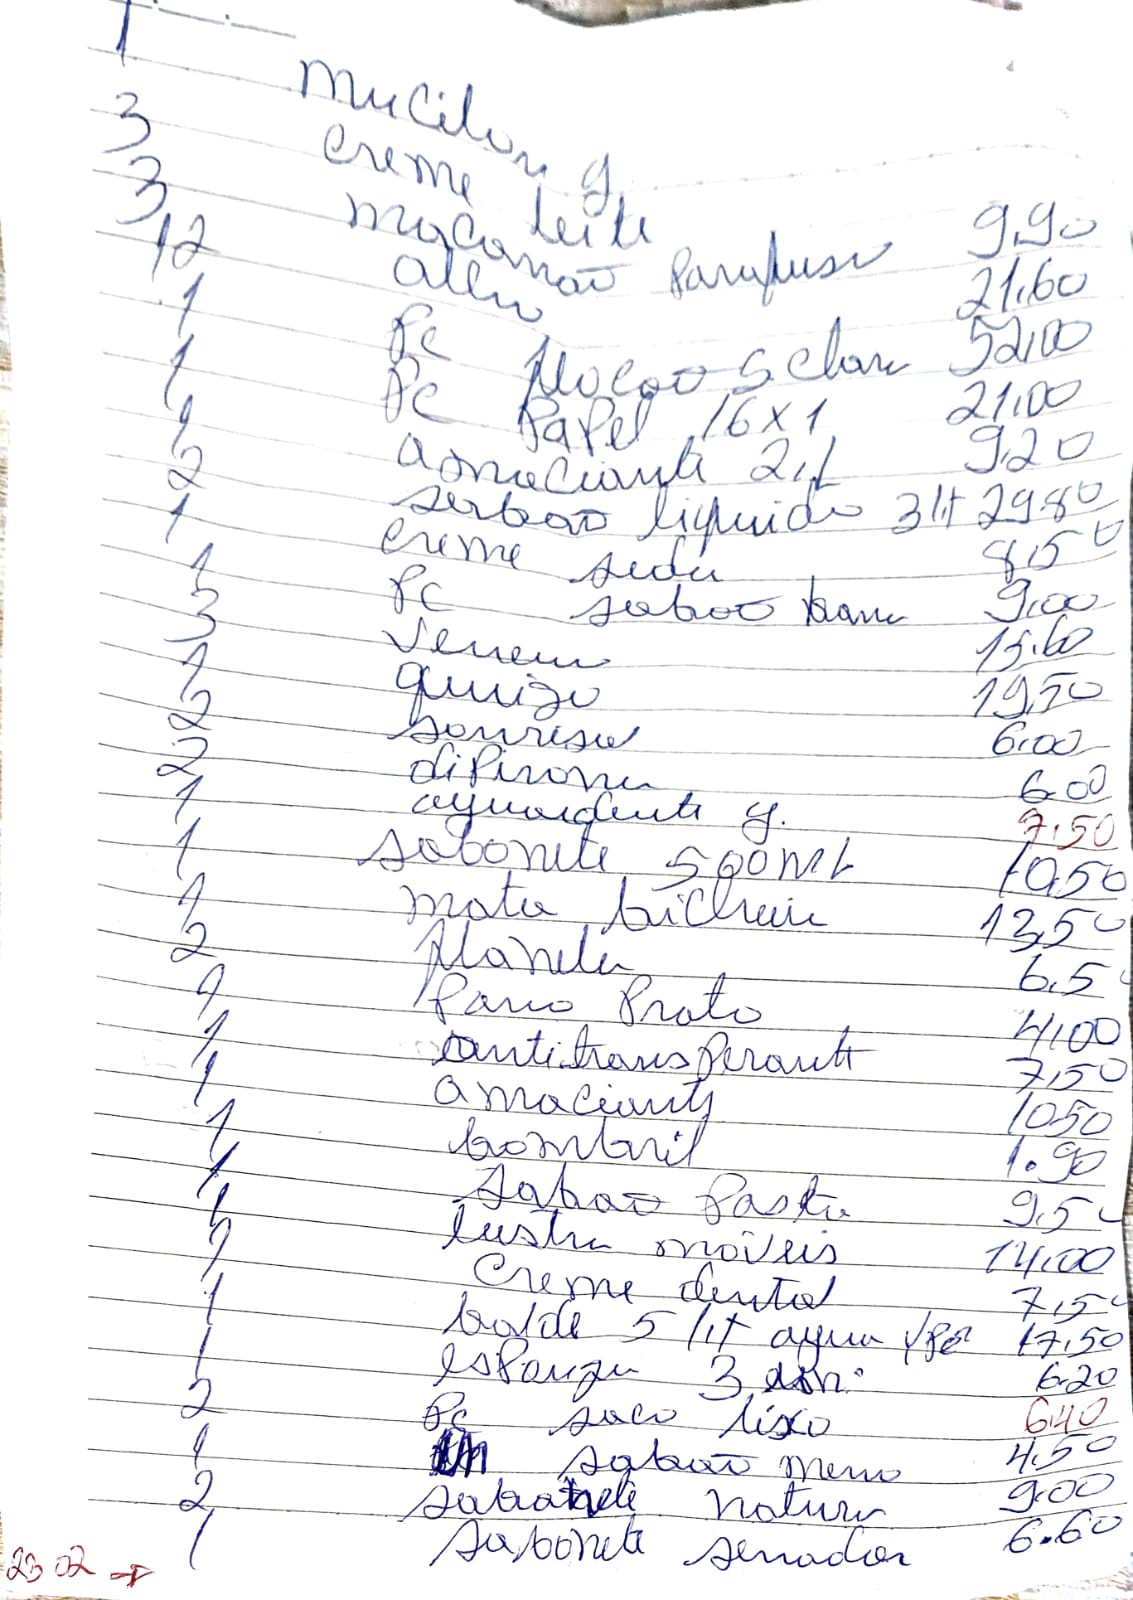 1 Mucilon g
3 creme leite
3 macarrão Parafuso 9,90
12 Alho 21,60
1 Pc 5 52,00
1 Pc Papel 16x1 21,00
1 amaciante 2,L 9,20
2 sabão liquido 3 lit 29,80
1 creme seda 8,50
1 Pc sabão barra 9,00
3 Veneno 15,60
1 19,50
2 sorriso 6,00
2 diPirona 6,00
1 aguardente g. 7,50
1 sabonete 500ML 10,50
1 mata bicheira 13,50
2 flanela 6,5
1 Pano Prato 4,00
1 antitransPerante 7,50
1 amaciante 10,50
1 bombril 1.90
1 sabão Pasta 9,5
1 lustra móveis 14,00
1 Creme dental 7,5
1 balde 5 lit agua 17,50
1 esPonja 3 6,20
2 Pc saco lixo 6,40
1 sabão 4,50
2 sabonete natura 9,00
1 sabonete senador 6.60
23 02 →